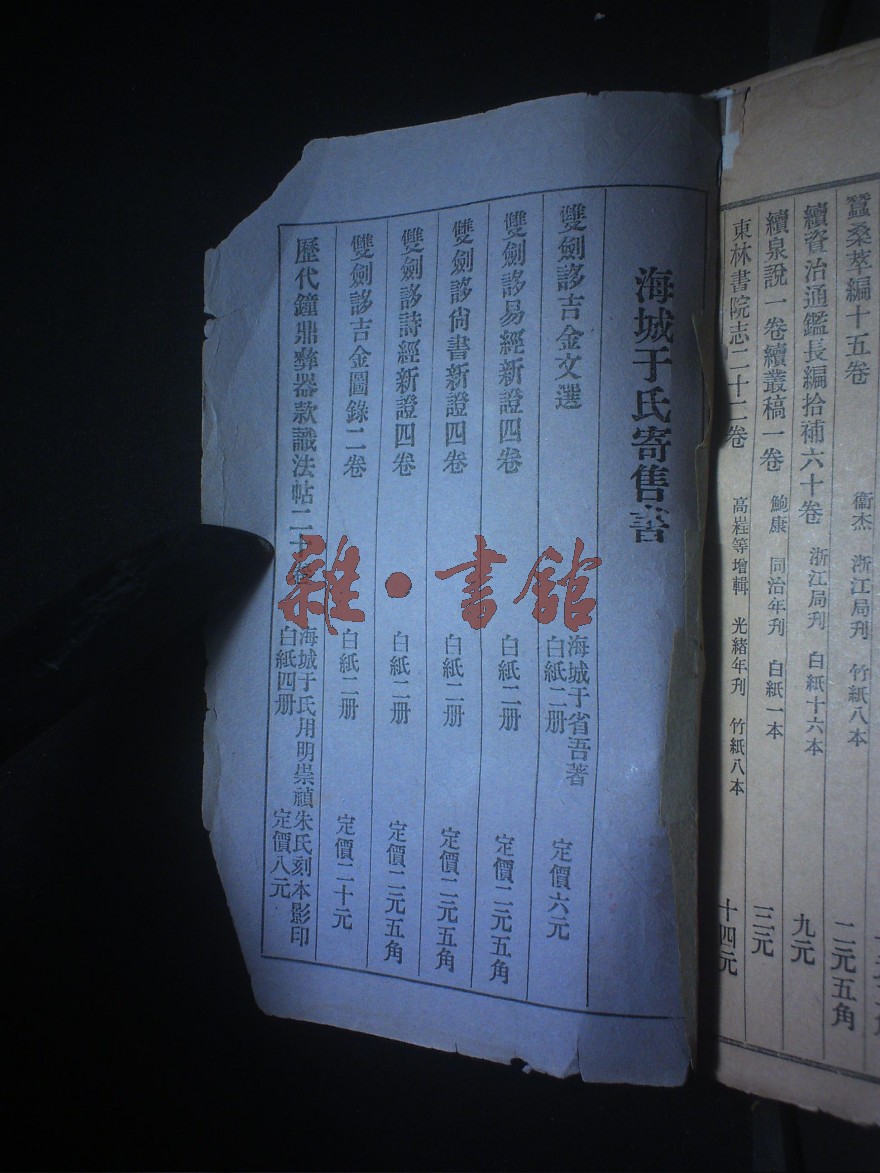 蠶桑萃編十五卷 衞杰 浙江局刊 竹紙八本 二元五角
續資治通鑑長編拾補六十卷 浙江局刊 白紙十六本 九元
續泉說一卷續叢稿一卷 鮑康 同治年刊 白紙一本 三元
東林書院志二十二卷 高嵀等增輯 光緒年刊 竹紙八本 十四元
海城于氏寄售書
雙劍誃吉金文選 海城于省吾著 白紙二册 定價六元
雙劍誃易經新證四卷 白紙二册 定價二元五角
雙劍誃尙書新證四卷 白紙二册 定價二元五角
雙劍誃詩經新證四卷 白紙二册 定價二元五角
雙劍誃吉金圖錄二卷 白紙二册 定價二十元
歷代鐘鼎彝器款識法帖二十卷 海城于氏用明崇禎朱氏刻本影印 白紙四册 定價八元
雜·書館